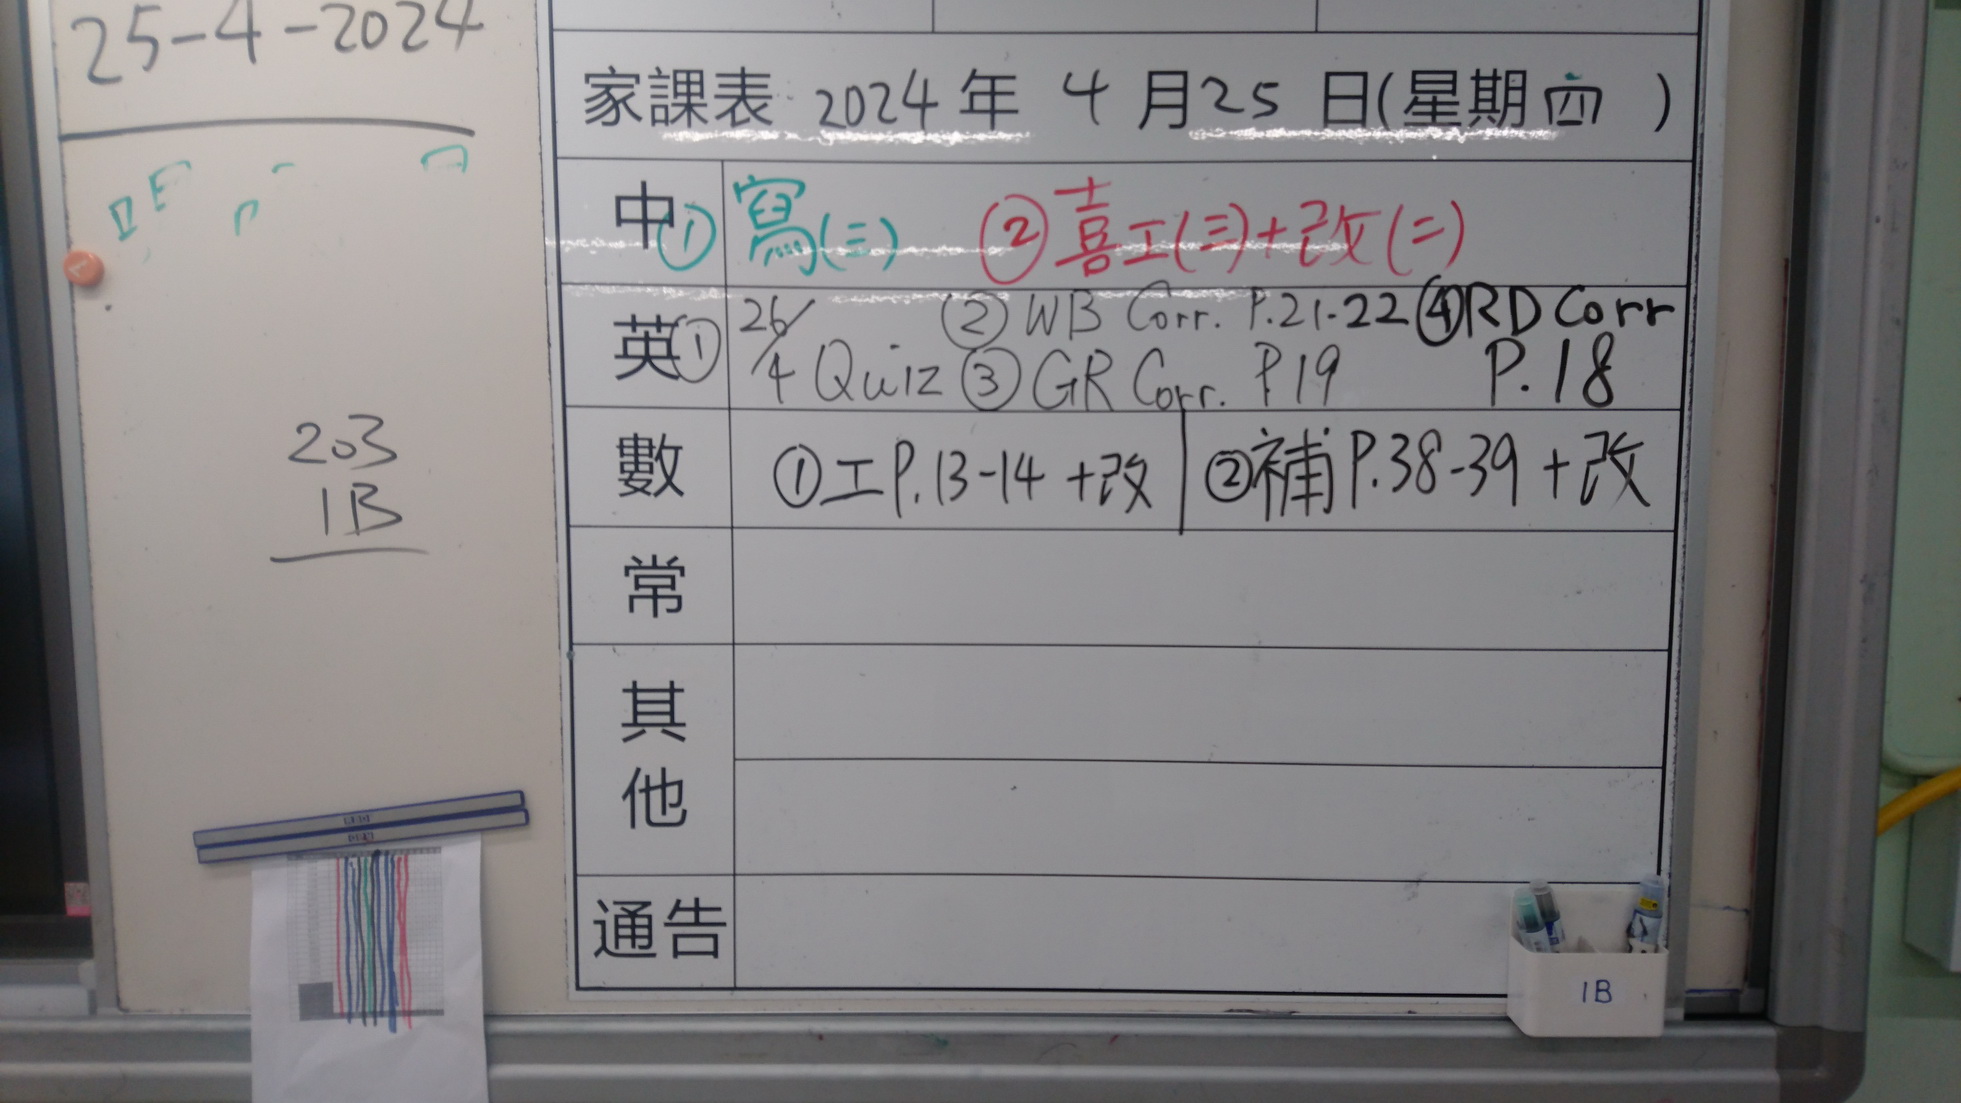 25-4-2024
203
1B
家課表 2024 年 4 月 25 日(星期四 )
中 ① 寫(三) ② 喜工(三)+改(二)
英 ① 26/4 Quiz ② WB Corr. P.21-22 ④ RD Corr P.18
③ GR Corr. P19
數 ①工P.13-14 +改 ②補P.38-39 +改
常
其他
通告
1B